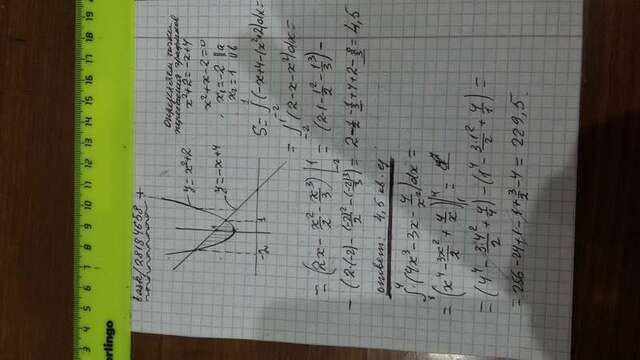 3 4 5 6 7 8 9 10 11 12 13 14 15 16 17 18 19 20
erlingo
task/28184658 +
y = x²+2
y = -x+4
-2 1
Определяем точки
пересечения графиков
x²+2 = -x+4
x²+x-2=0
x₁=-2 || a
x₂=1 || b
S = ∫₋₂¹ (-x+4-(x²+2))dx =
= ∫₋₂¹ (2-x-x²)dx =
= (2x - x²/2 - x³/3) |₋₂¹ = (2·1 - 1²/2 - 1³/3) -
- (2·(-2) - (-2)²/2 - (-2)³/3) = 2 - 1/2 - 1/3 + 4 + 2 - 8/3 = 4,5
ответ: 4,5 кв. ед
∫₁⁴ (4x³ - 3x - 4/x²)dx =
= (x⁴ - 3x²/2 + 4/x) |₁⁴ =
= (4⁴ - 3·4²/2 + 4/4) - (1⁴ - 3·1²/2 + 4/1) =
= 256 - 24 + 1 - 1 + 3/2 - 4 = 229,5.